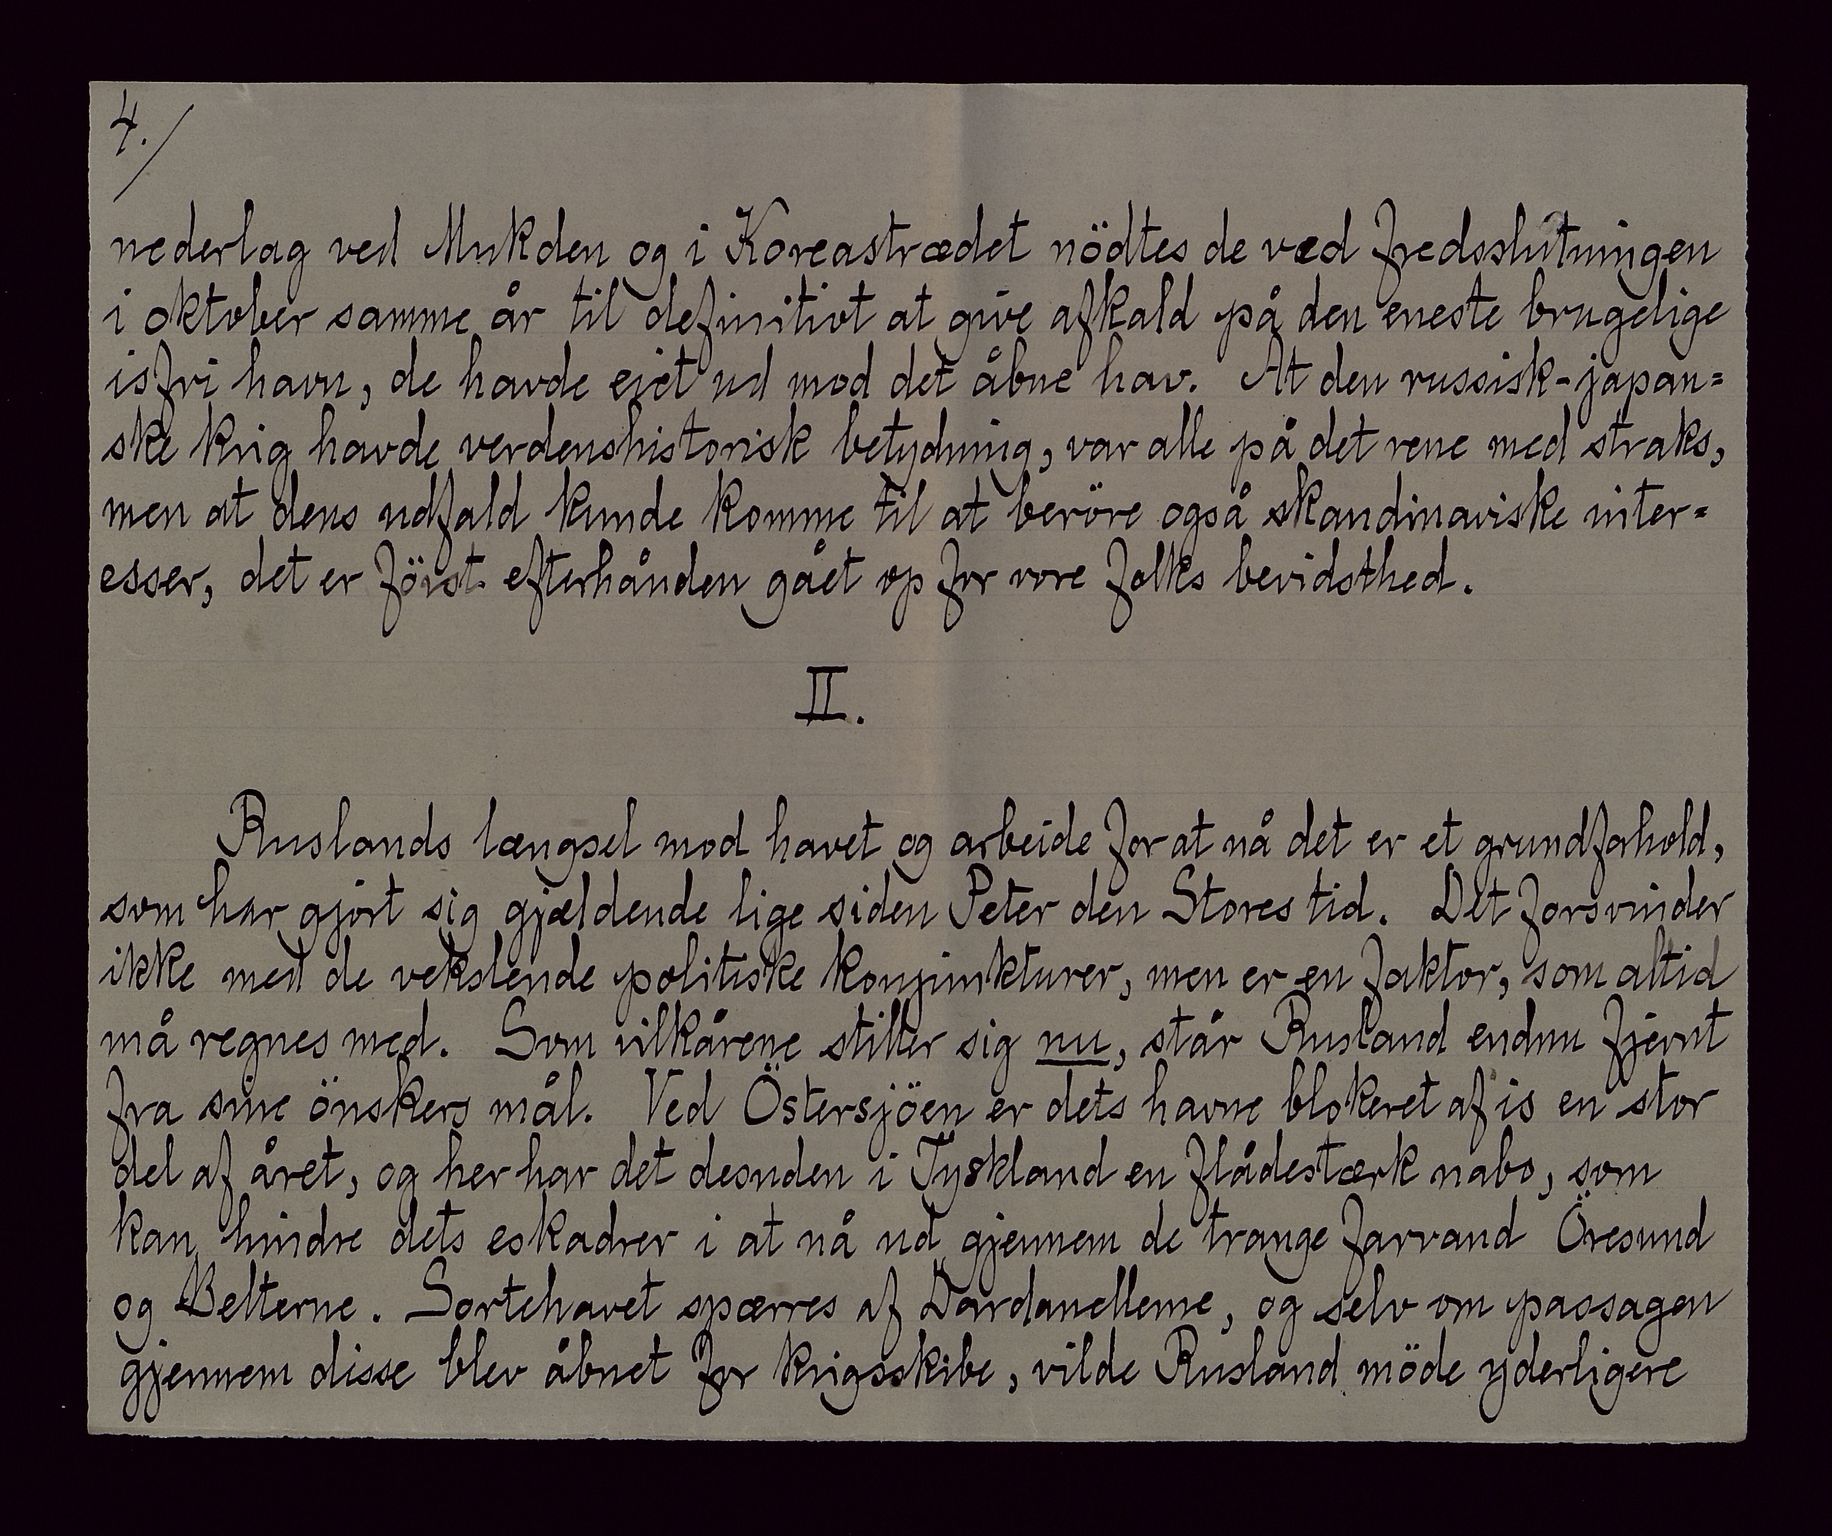 4./
nederlag ved Mukden og i Koreastrædet nödtes de ved fredsslutningen
i oktober samme år til definitivt at give afkald på den eneste brugelige
isfri havn, de havde eiet ud mod det åbne hav. At den russisk-japan=
ske krig havde verdenshistorisk betydning, var alle på det rene med straks,
men at dens udfald kunde komme til at beröre også skandinaviske inter=
esser, det er först efterhånden gået op for vore folks bevidsthed.
II.
Ruslands længsel mod havet og arbeide for at nå det er et grundforhold,
som har gjort sig gjældende lige siden Peter den Stores tid. Det forsvinder
ikke med de vekslende politiske konjunkturer, men er en faktor, som altid
må regnes med. Som vilkårene stiller sig nu, står Rusland endnu fjernt
fra sine önskers mål. Ved Östersjöen er dets havne blokeret af is en stor
del af året, og her har det desuden i Tyskland en flådestærk nabo, som
kan hindre dets eskadrer i at nå ud gjennem de trange farvand Öresund
og Belterne. Sortehavet spærres af Dardanellerne, og selv om passagen
gjennem disse blev åbnet for krigsskibe, vilde Rusland möde yderligere